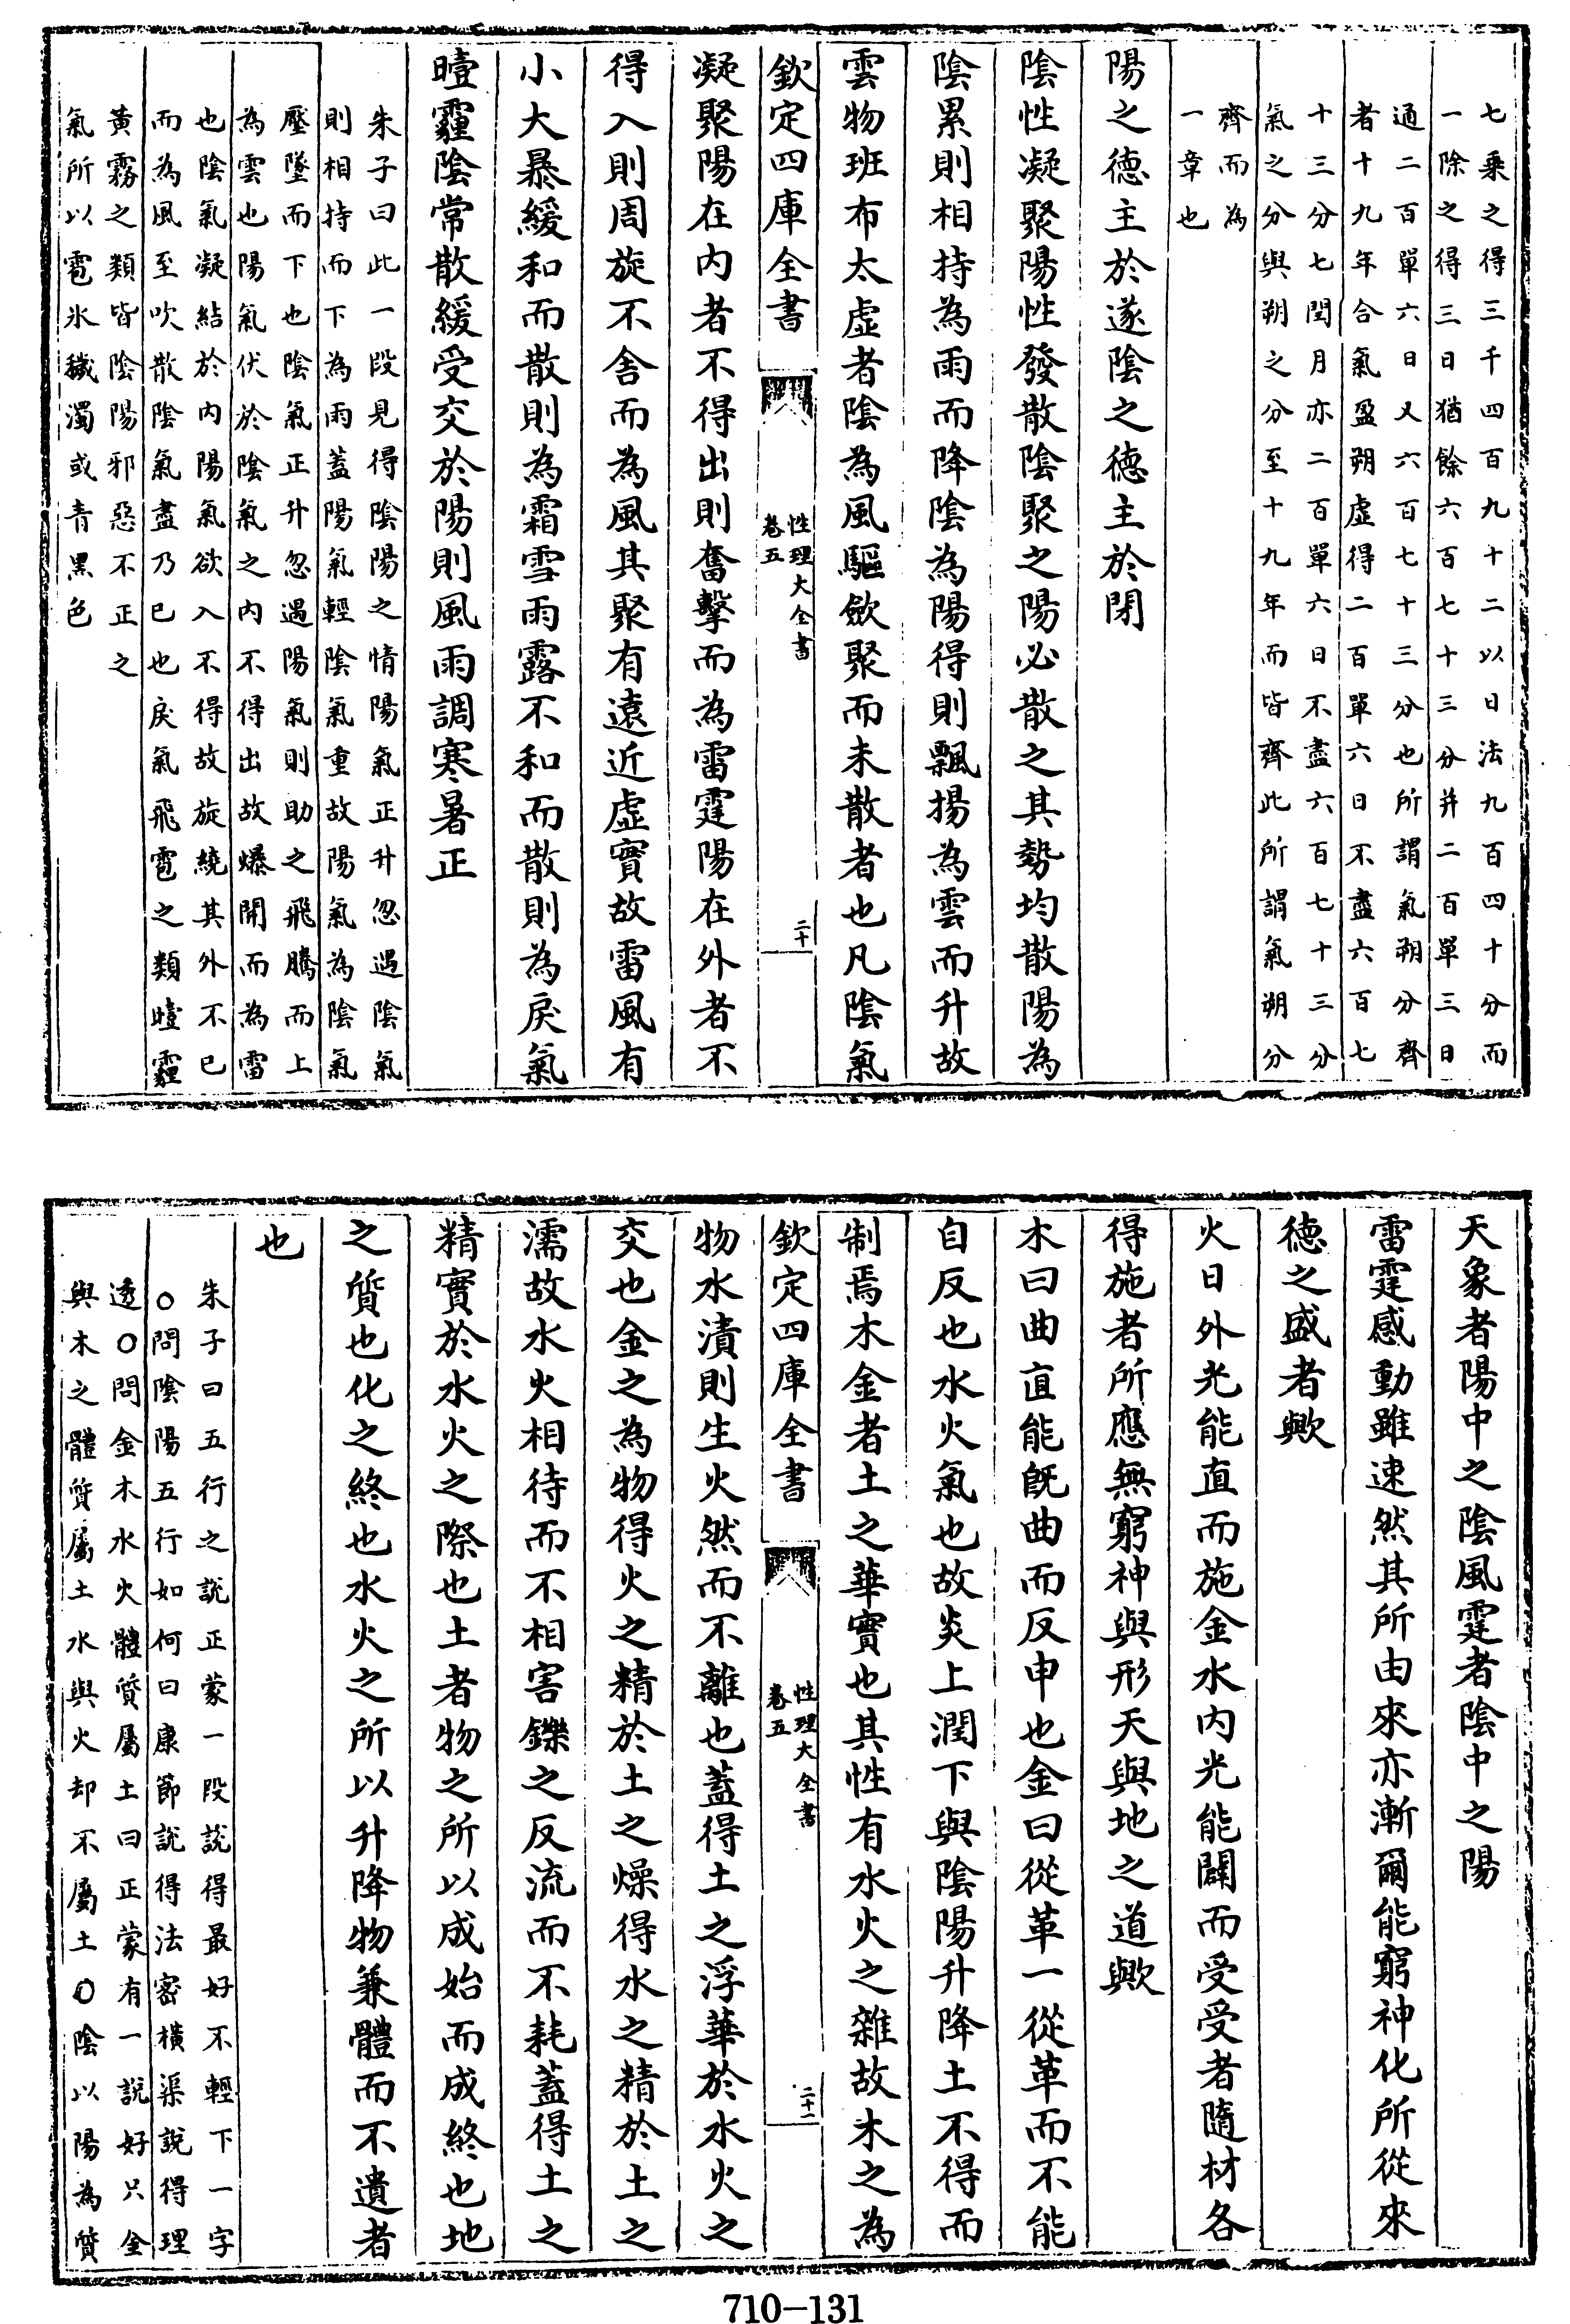 七乘之得三千四百九十二以日法九百四十分而
一除之得三日猶餘六百七十三分并二百單三日
通二百單六日又六百七十三分也所謂氣朔分齊
者十九年合氣盈朔虛得二百單六日不盡六百七
十三分七閏月亦二百單六日不盡六百七十三分
氣之分與朔之分至十九年而皆齊此所謂氣朔分
齊而為
一章也
陽之德主於遂陰之德主於閉
陰性凝聚陽性發散陰聚之陽必散之其勢均散陽為
陰累則相持為雨而降陰為陽得則飄揚為雲而升故
雲物班布太虛者陰為風驅歛聚而未散者也凡陰氣
欽定四庫全書
性理大全書
卷五
二十
凝聚陽在内者不得出則奮擊而為雷霆陽在外者不
得入則周旋不舍而為風其聚有遠近虛實故雷風有
小大暴緩和而散則為霜雪雨露不和而散則為戾氣
曀霾陰常散緩受交於陽則風雨調寒暑正
朱子曰此一段見得陰陽之情陽氣正升忽遇陰氣
則相持而下為雨蓋陽氣輕陰氣重故陽氣為陰氣
壓墜而下也陰氣正升忽遇陽氣則助之飛騰而上
為雲也陽氣伏於陰氣之内不得出故爆開而為雷
也陰氣凝結於内陽氣欲入不得故旋繞其外不已
而為風至吹散陰氣盡乃已也戾氣飛雹之類曀霾
黃霧之類皆陰陽邪惡不正之
氣所以雹氷穢濁或青黑色
天象者陽中之陰風霆者陰中之陽
雷霆感動雖速然其所由來亦漸爾能窮神化所從來
德之盛者歟
火日外光能直而施金水内光能闢而受受者隨材各
得施者所應無窮神與形天與地之道歟
木曰曲直能既曲而反申也金曰從革一從革而不能
自反也水火氣也故炎上潤下與陰陽升降土不得而
制焉木金者土之華實也其性有水火之雜故木之為
欽定四庫全書
性理大全書
卷五
二十一
物水漬則生火然而不離也蓋得土之浮華於水火之
交也金之為物得火之精於土之燥得水之精於土之
濡故水火相待而不相害鑠之反流而不耗蓋得土之
精實於水火之際也土者物之所以成始而成終也地
之質也化之終也水火之所以升降物兼體而不遺者
也
朱子曰五行之說正蒙一段說得最好不輕下一字
○問陰陽五行如何曰康節說得法密橫渠說得理
透○問金木水火體質屬土曰正蒙有一說好只金
與木之體質屬土水與火却不屬土○陰以陽為質
710-131